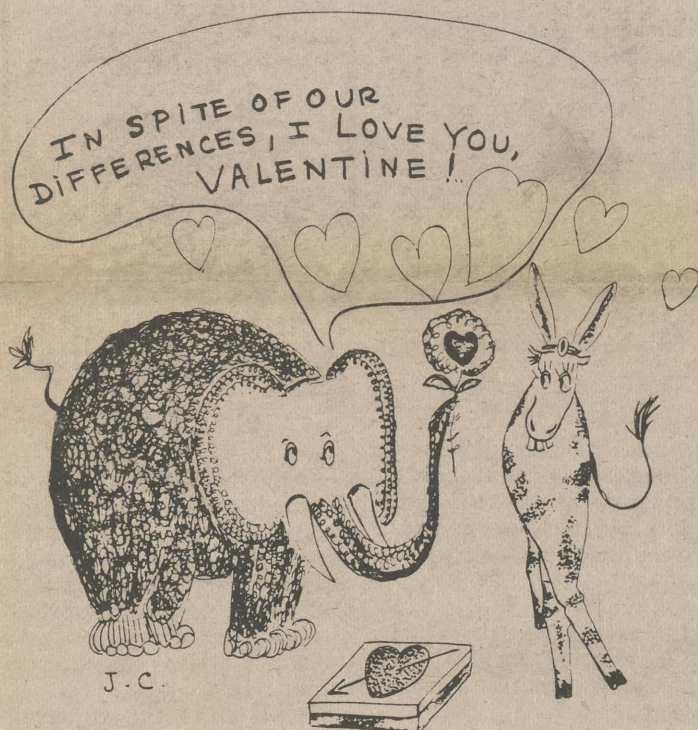 IN SPITE OF OUR
DIFFERENCES, I LOVE YOU,
VALENTINE!
J.C.